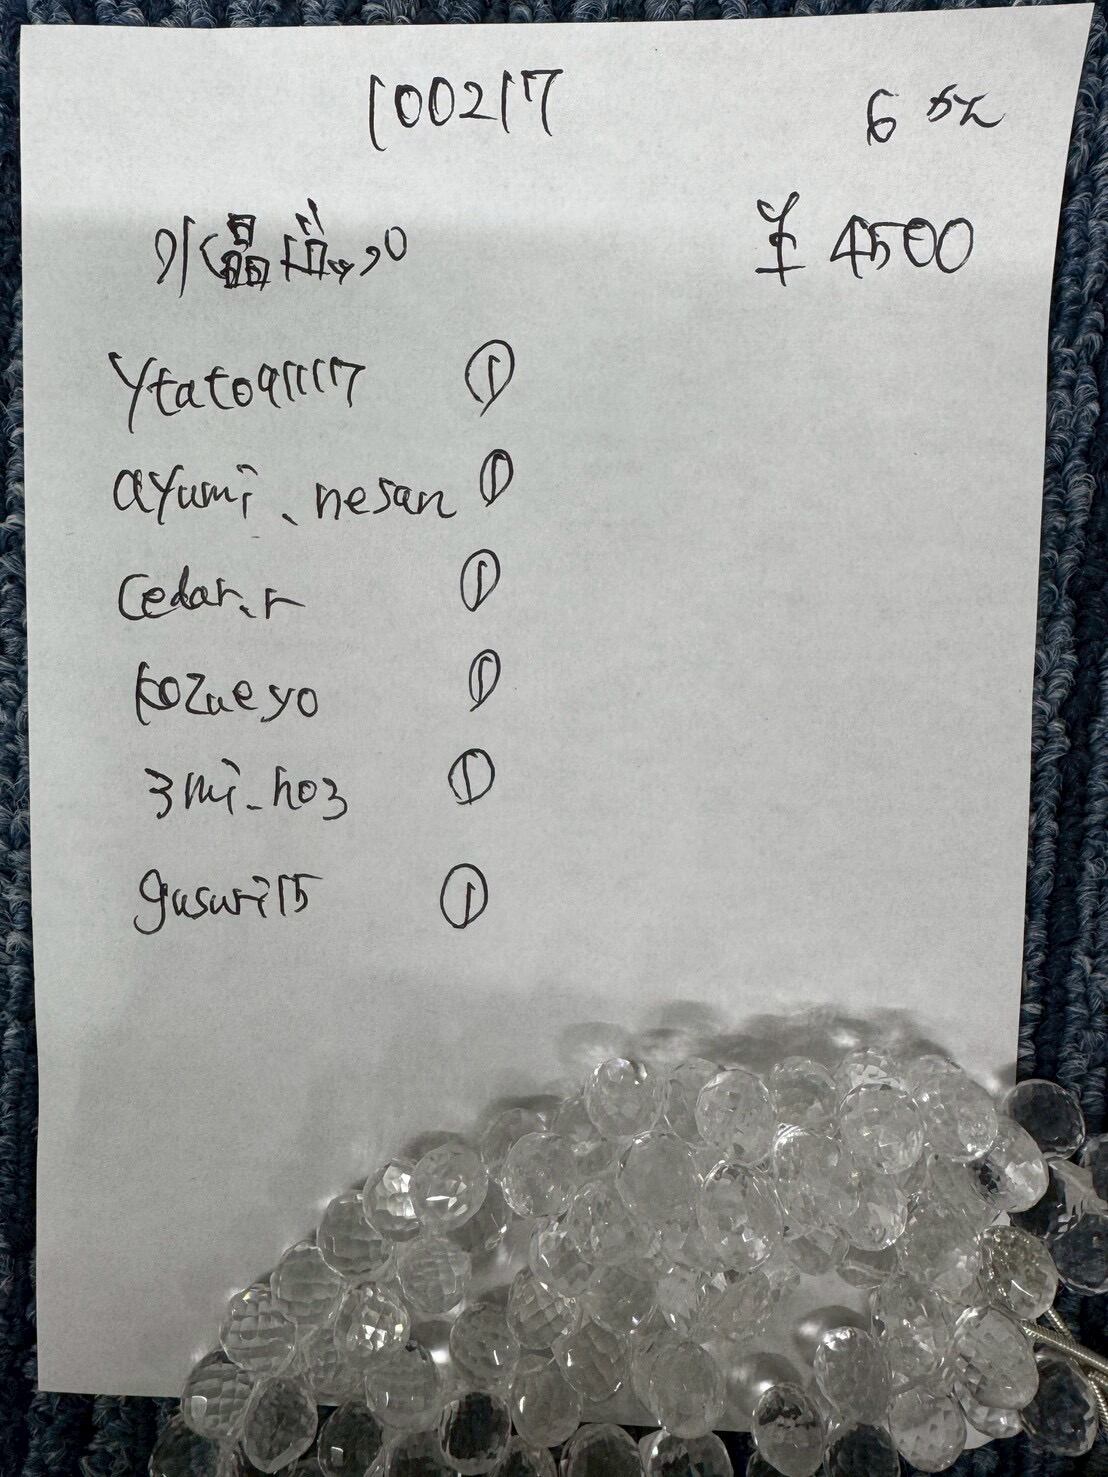 100217 6かん
水晶
¥4500
Ytato91117 ①
ayumi.nesan ①
cedar.r ①
kozueyo ①
3mi_ho3 ①
gusuri15 ①